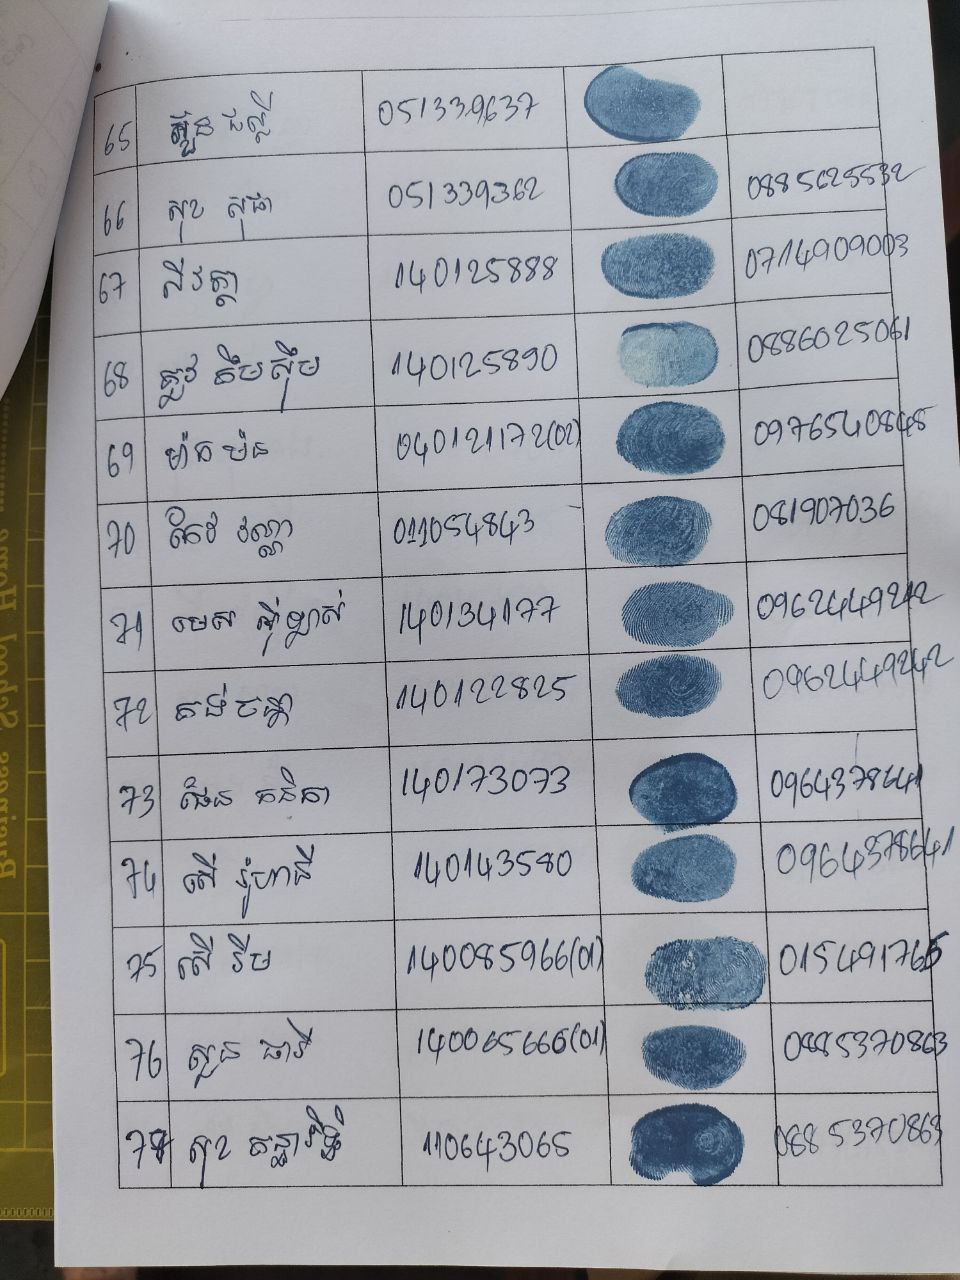 65 051339637
66 សុខ សុផា 051339362 0885625532
67 ស៊ីវត្ថា 140125888 0714909003
68 គឹមស៊ឹម 140125890 0886025061
69 ម៉ាក ម៉ន 040121172(02) 0976540848
70 កែវ វណ្ណា 011054843 081907036
71 មេស 140134177 0962449242
72 គង់ចន្ថា 140122825 0962449242
73 ផែន គនិកា 140173073 0964378641
74 សើ រ៉ូហានី 140143580 0964378641
75 សើ រីម 140085966(01) 015491765
76 សួន ផារី 140065666(01) 0885370863
77 សុខ 110643065 0885370863